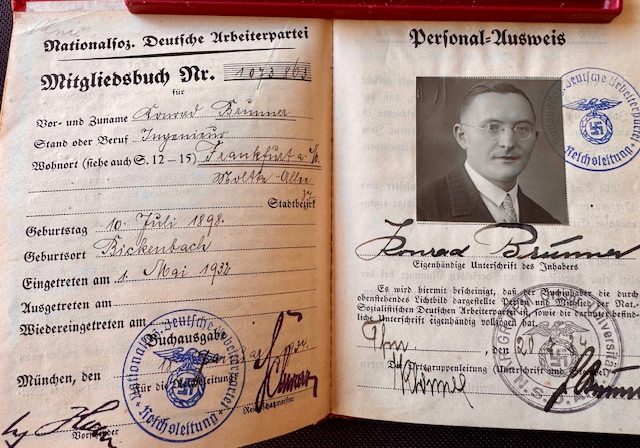 Nationalsoz. Deutsche Arbeiterpartei
Mitgliedsbuch Nr. 1073863
für
Vor- und Zuname Konrad Brunner
Stand oder Beruf Ingenieur
Wohnort (siehe auch S. 12 – 15) Frankfurt a/M.
Moltke-Allee
Stadtbezirk
Geburtstag 10. Juli 1898.
Geburtsort Bickenbach
Eingetreten am 1. Mai 1932
Ausgetreten am
Wiedereingetreten am
Buchausgabe
München, den
Für die Reichsleitung
Reichsschatzmeister
Vorsitzender
Nationalsoz. Deutsche Arbeiterpartei
Reichsleitung
Personal-Ausweis
Deutsche Arbeiterpartei
Reichsleitung
Konrad Brunner
Eigenhändige Unterschrift des Inhabers
Es wird hiermit bescheinigt, daß der Buchinhaber die durch
obenstehendes Lichtbild dargestellte Person und Mitglied der Nat.-
Sozialistischen Deutschen Arbeiterpartei ist, sowie die darunter befind-
liche Unterschrift eigenhändig vollzogen hat.
, den 20
Die Ortsgruppenleitung (Unterschrift und Stempel)